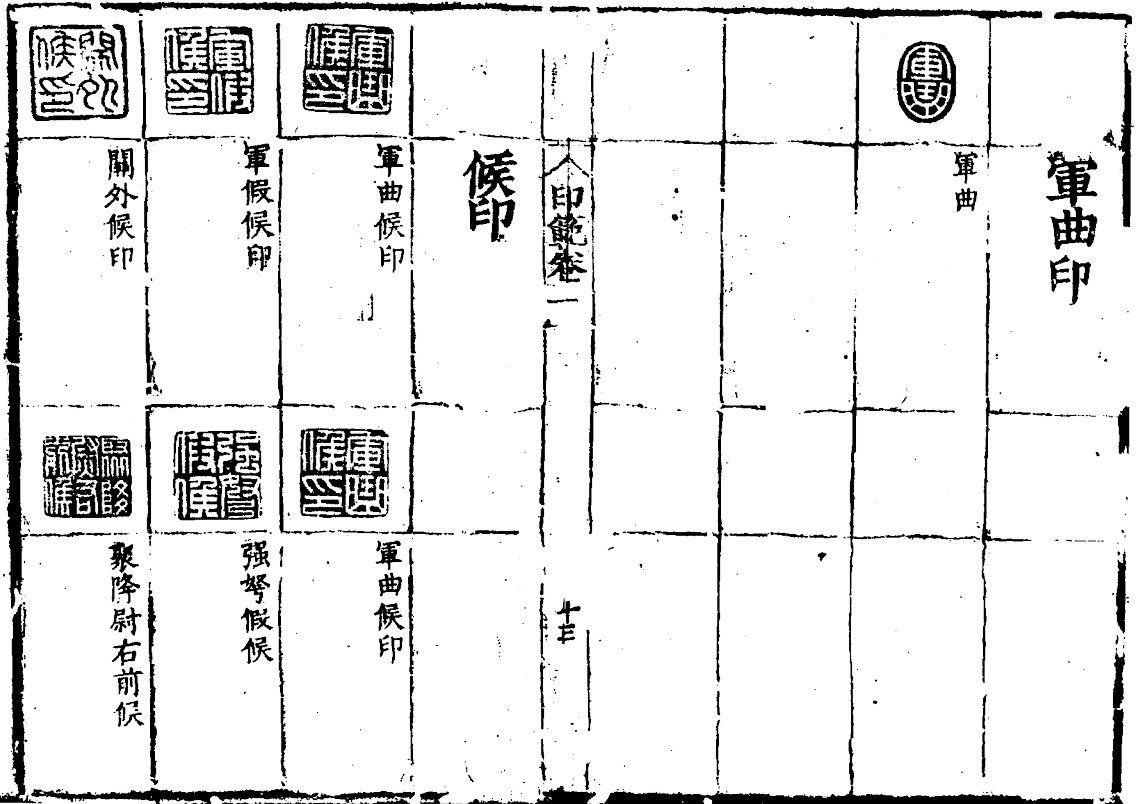 軍曲印
軍曲
印範卷一
十三
候印
軍曲候印
軍曲候印
軍假候印
强弩假候
關外候印
聚降尉右前候